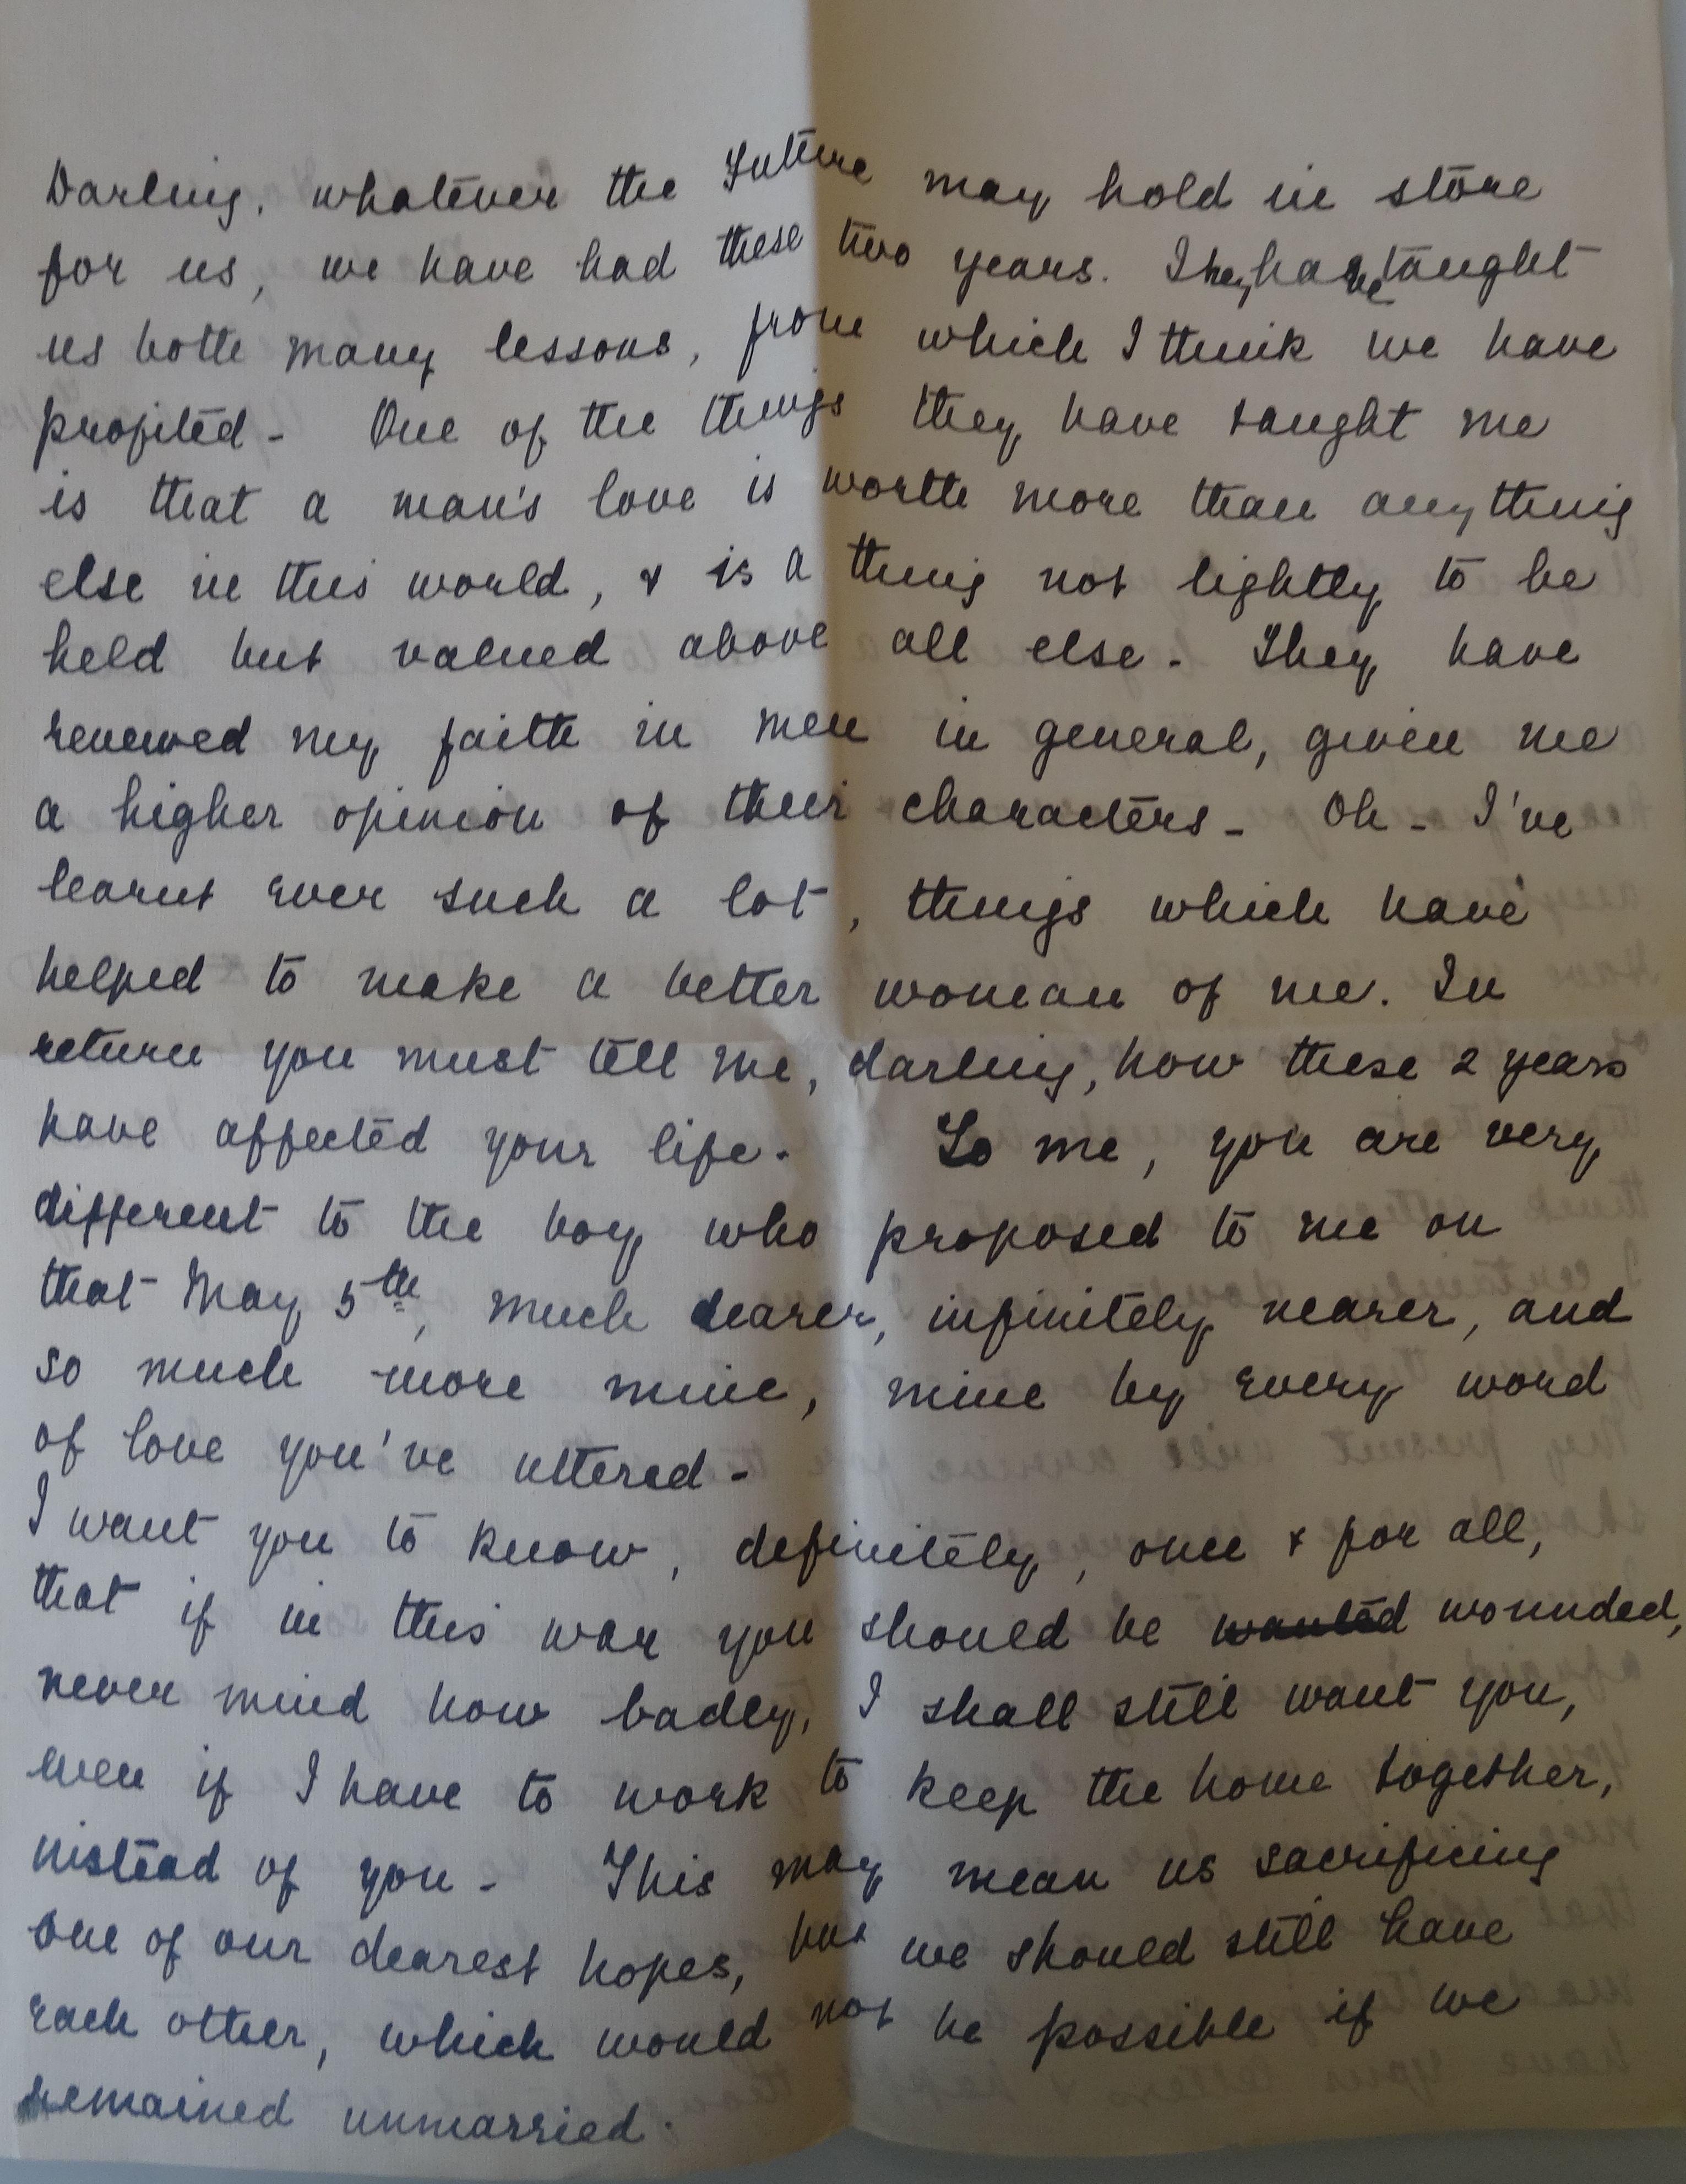 Darling, whatever the future may hold in store
for us, we have had these two years. They have taught
us both many lessons, from which I think we have
profited - One of the things they have taught me
is that a man's love is worth more than anything
else in this world, & is a thing not lightly to be
held but valued above all else - They have
renewed my faith in men in general, given me
a higher opinion of their characters - Oh - I've
learnt ever such a lot, things which have
helped to make a better woman of me. In
return you must tell me, darling, how these 2 years
have affected your life - To me, you are very
different to the boy who proposed to me on
that May 5th, much dearer, infinitely nearer, and
so much more mine, mine by every word
of love you've uttered -
I want you to know, definitely, once & for all,
that if in this war you should be wanted wounded,
never mind how badly, I shall still want you,
even if I have to work to keep the home together,
instead of you - This may mean us sacrificing
one of our dearest hopes, but we should still have
each other, which would not be possible if we
remained unmarried.